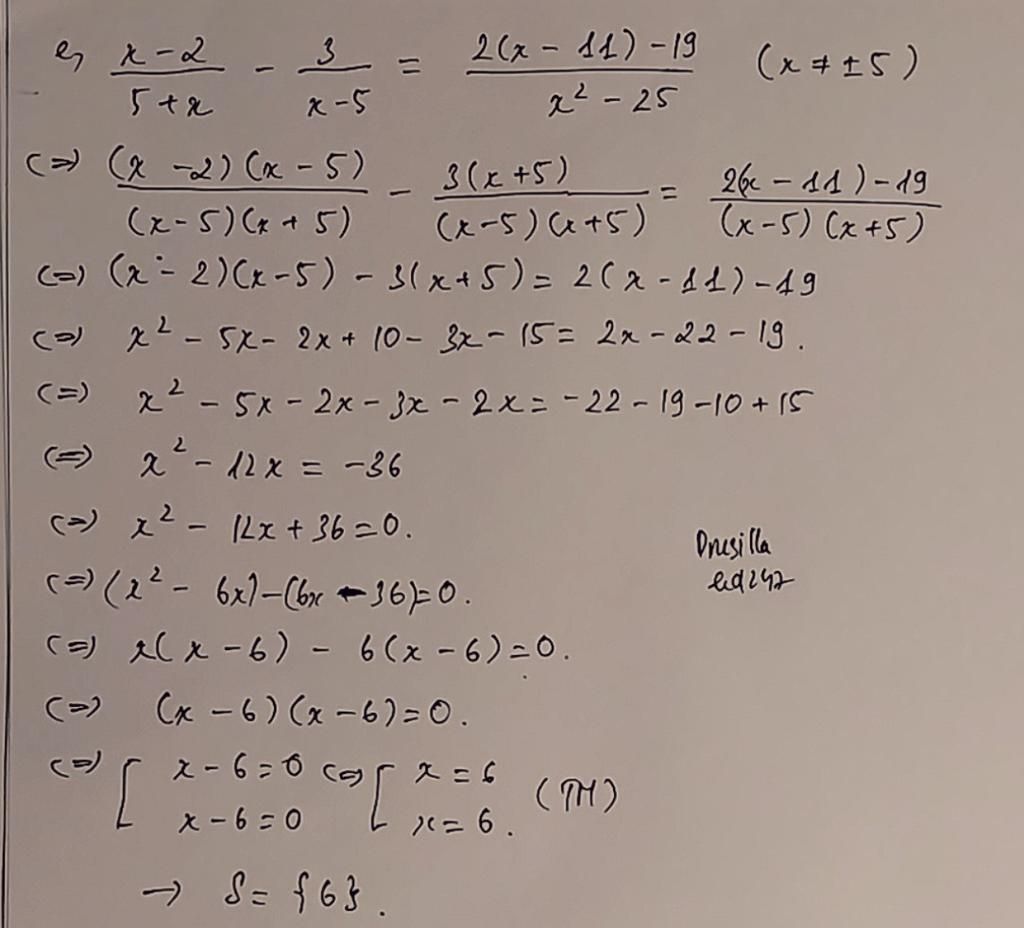 e, x-2/5+x - 3/x-5 = 2(x-11)-19/x²-25 (x≠±5)
(=) (x-2)(x-5)/(x-5)(x+5) - 3(x+5)/(x-5)(x+5) = 2(x-11)-19/(x-5)(x+5)
(=) (x-2)(x-5) - 3(x+5) = 2(x-11)-19
(=) x² - 5x - 2x + 10 - 3x - 15 = 2x - 22 - 19.
(=) x² - 5x - 2x - 3x - 2x = -22 - 19 - 10 + 15
(=) x² - 12x = -36
(=) x² - 12x + 36 = 0.
Drusilla
(=) (x² - 6x) - (6x - 36) = 0.
(=) x(x-6) - 6(x-6) = 0.
(=) (x-6)(x-6) = 0.
(=) [ x-6=0 (=) [ x=6 (TM)
x-6=0 x=6.
→ S = {6}.